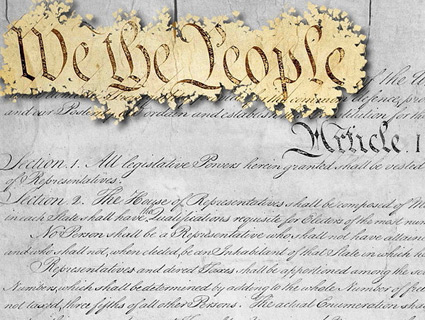 We the People
of the U
common defence, pro
and our Posterity, do ordain and establish this Constitution for th
Article. I
Section 1. All legislative Powers herein granted shall be vested
of Representatives.
Section 2. The House of Representatives shall be composed of M
in each State shall have the Qualifications requisite for Electors of the most num
No Person shall be a Representative who shall not have attain
and who shall not, when elected, be an Inhabitant of that State in which he
Representatives and direct Taxes shall be apportioned among the se
Numbers, which shall be determined by adding to the whole Number of free
not taxed, three fifths of all other Persons. The actual Enumeration shall